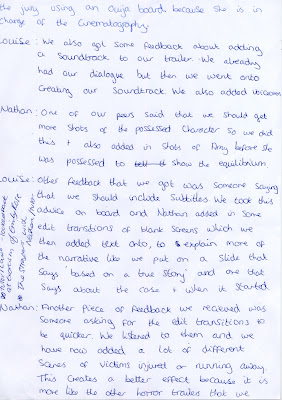 the jury using an Ouija board because she is in
charge of the cinematography.
Louise: We also got some feedback about adding
a soundtrack to our trailer. We already
had our dialogue but then we went onto
creating our soundtrack. We also added
Nathan: One of our peers said that we should get
more shots of the possessed character so we did
this + also added in shots of Amy before she
was possessed to tell it show the equilibrium.
Louise: Other feedback that we got was someone saying
that we should include subtitles. We took this
advice on board and Nathan added in some
edit transitions of blank screens which we
then added text onto, to explain more of
the narrative like we put on a slide that
says 'based on a true story' and one that
says about the case + when it started.
Nathan: Another piece of feedback we recieved was
someone asking for the edit transitions to
be quicker. We listened to them and we
have now added a lot of different
scenes of victims injured or running away.
This creates a better effect because it is
more like the other horror trailers that we